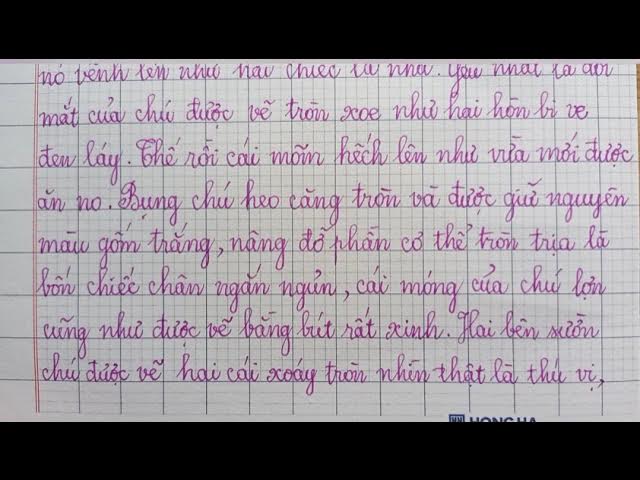 nó vểnh lên như hai chiếc lá nhỏ. Yêu nhất là đôi
mắt của chú được vẽ tròn xoe như hai hòn bi ve
đen láy. Thế rồi cái mõm hếch lên như vừa mới được
ăn no. Bụng chú heo căng tròn và được giữ nguyên
màu gốm trắng, nâng đỡ phần cơ thể tròn trịa là
bốn chiếc chân ngắn ngủn, cái móng của chú lợn
cũng như được vẽ bằng bút rất xinh. Hai bên sườn
chú được vẽ hai cái xoáy tròn nhìn thật là thú vị,
HONG HA